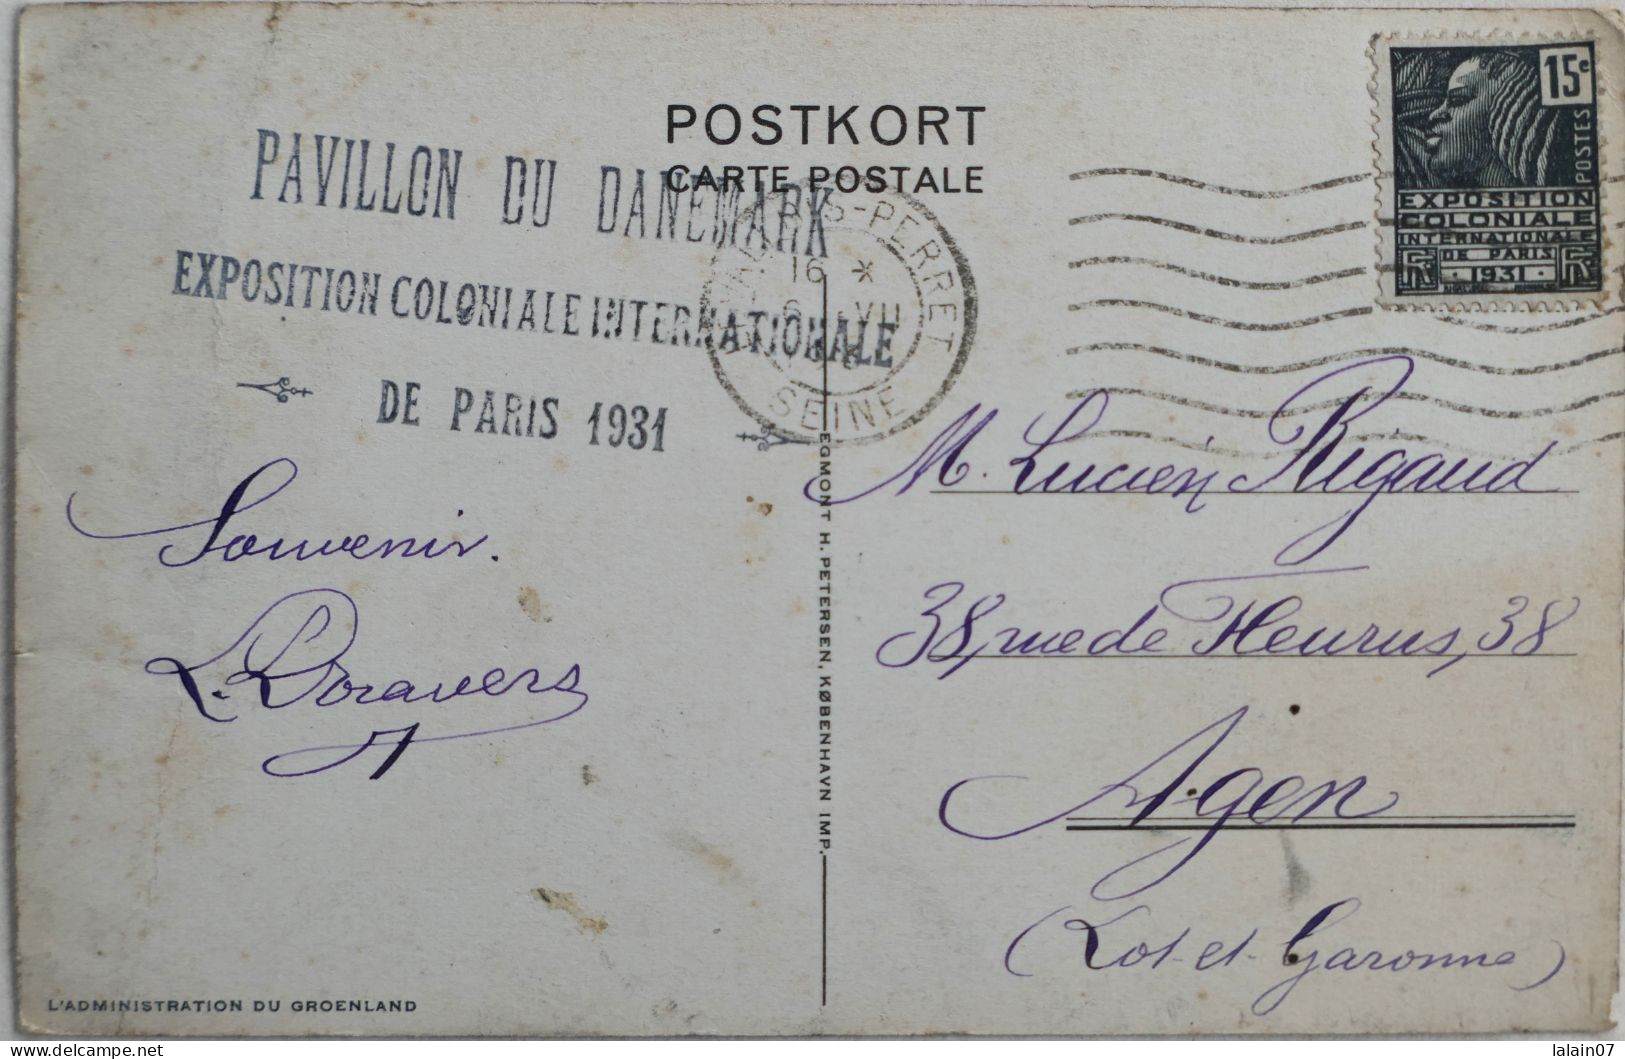 POSTKORT
CARTE POSTALE
PAVILLON DU DANEMARK
EXPOSITION COLONIALE INTERNATIONALE
DE PARIS 1931
15c
POSTES
EXPOSITION
COLONIALE
INTERNATIONALE
DE PARIS
·1931·
RF RF
S-PERRET
16 *
6 VII
SEINE
Souvenir.
M. Lucien Rigaud
38, rue de Fleurus, 38
Agen
(Lot-et-Garonne)
EGMONT H. PETERSEN, KØBENHAVN IMP.
L'ADMINISTRATION DU GROENLAND
Delcampe.net
lalain07